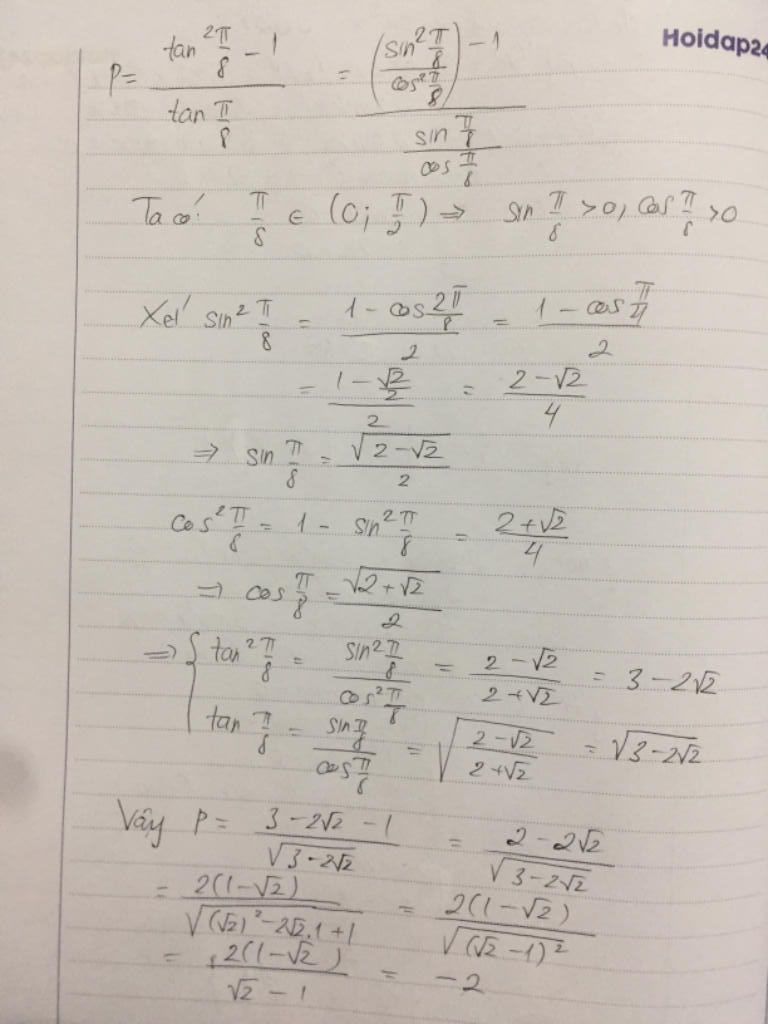 Hoidap24
P = (tan²π/8 - 1)/(tan π/8) = ((sin²π/8)/(cos²π/8) - 1)/((sin π/8)/(cos π/8))
Ta có: π/8 ∈ (0; π/2) ⇒ sin π/8 > 0, cos π/8 > 0
Xét sin²π/8 = (1 - cos 2π/8)/2 = (1 - cos π/4)/2
= (1 - √2/2)/2 = (2 - √2)/4
⇒ sin π/8 = √(2 - √2)/2
cos²π/8 = 1 - sin²π/8 = (2 + √2)/4
⇒ cos π/8 = √(2 + √2)/2
⇒ { tan²π/8 = (sin²π/8)/(cos²π/8) = (2 - √2)/(2 + √2) = 3 - 2√2
tan π/8 = (sin π/8)/(cos π/8) = √((2 - √2)/(2 + √2)) = √(3 - 2√2)
Vậy P = (3 - 2√2 - 1)/√(3 - 2√2) = (2 - 2√2)/√(3 - 2√2)
= 2(1 - √2)/√((√2)² - 2√2.1 + 1) = 2(1 - √2)/√((√2 - 1)²)
= 2(1 - √2)/(√2 - 1) = -2